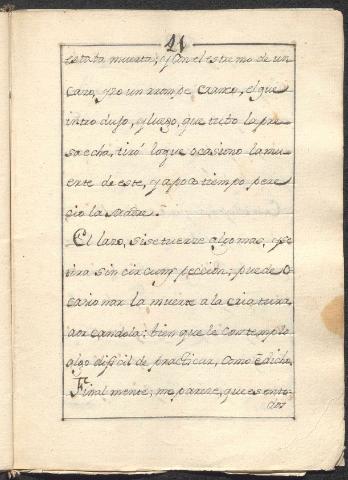 21
estaba muerta; y con el estremo de un
cazo, yzo un rrompe craneo, el que
introdujo, y luego, que tubo la pre
sa echa, tiró lo que ocasiono la mu
erte de este, y a poco tiempo pere
cio la madre.
El lazo, si se tuerze algo mas, y se
tira sin circumspeccion; puede o
casionar la muerte a la criatura
aorcandola: bien que le contemplo
algo dificil de practicar, como é dicho.
Finalmente; me pareze, que es en to-
dos